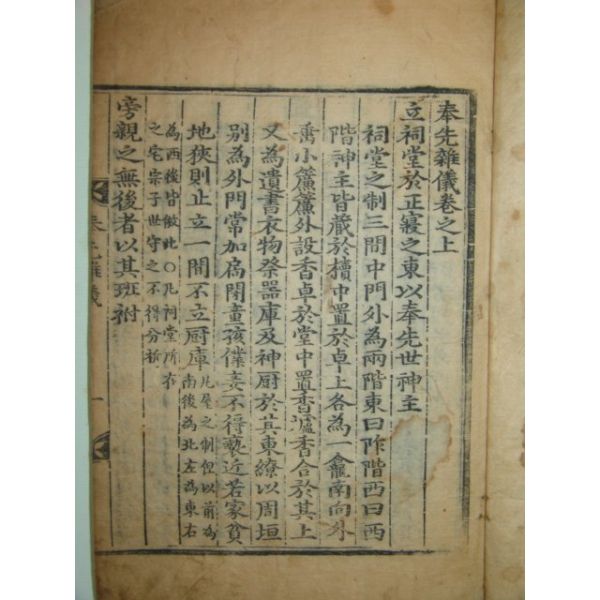 奉先雜儀卷之上
立祠堂於正寢之東以奉先世神主
祠堂之制三間中門外為兩階東曰阼階西曰西
階神主皆藏於櫝中置於卓上各為一龕南向外
垂小簾簾外設香卓於堂中置香爐香合於其上
又為遺書衣物祭器庫及神厨於其東繚以周垣
別為外門常加扃閉童孩僕妾不得褻近若家貧
地狹則止立一間不立厨庫凡屋之制但以前為
南後為北左為東右
為西後皆倣此○凡祠堂所在
之宅宗子世守之不得分析
旁親之無後者以其班祔
奉先雜儀
一